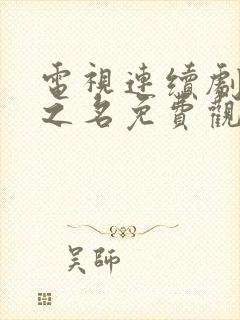 電視連續劇
之名免費觀
吴師